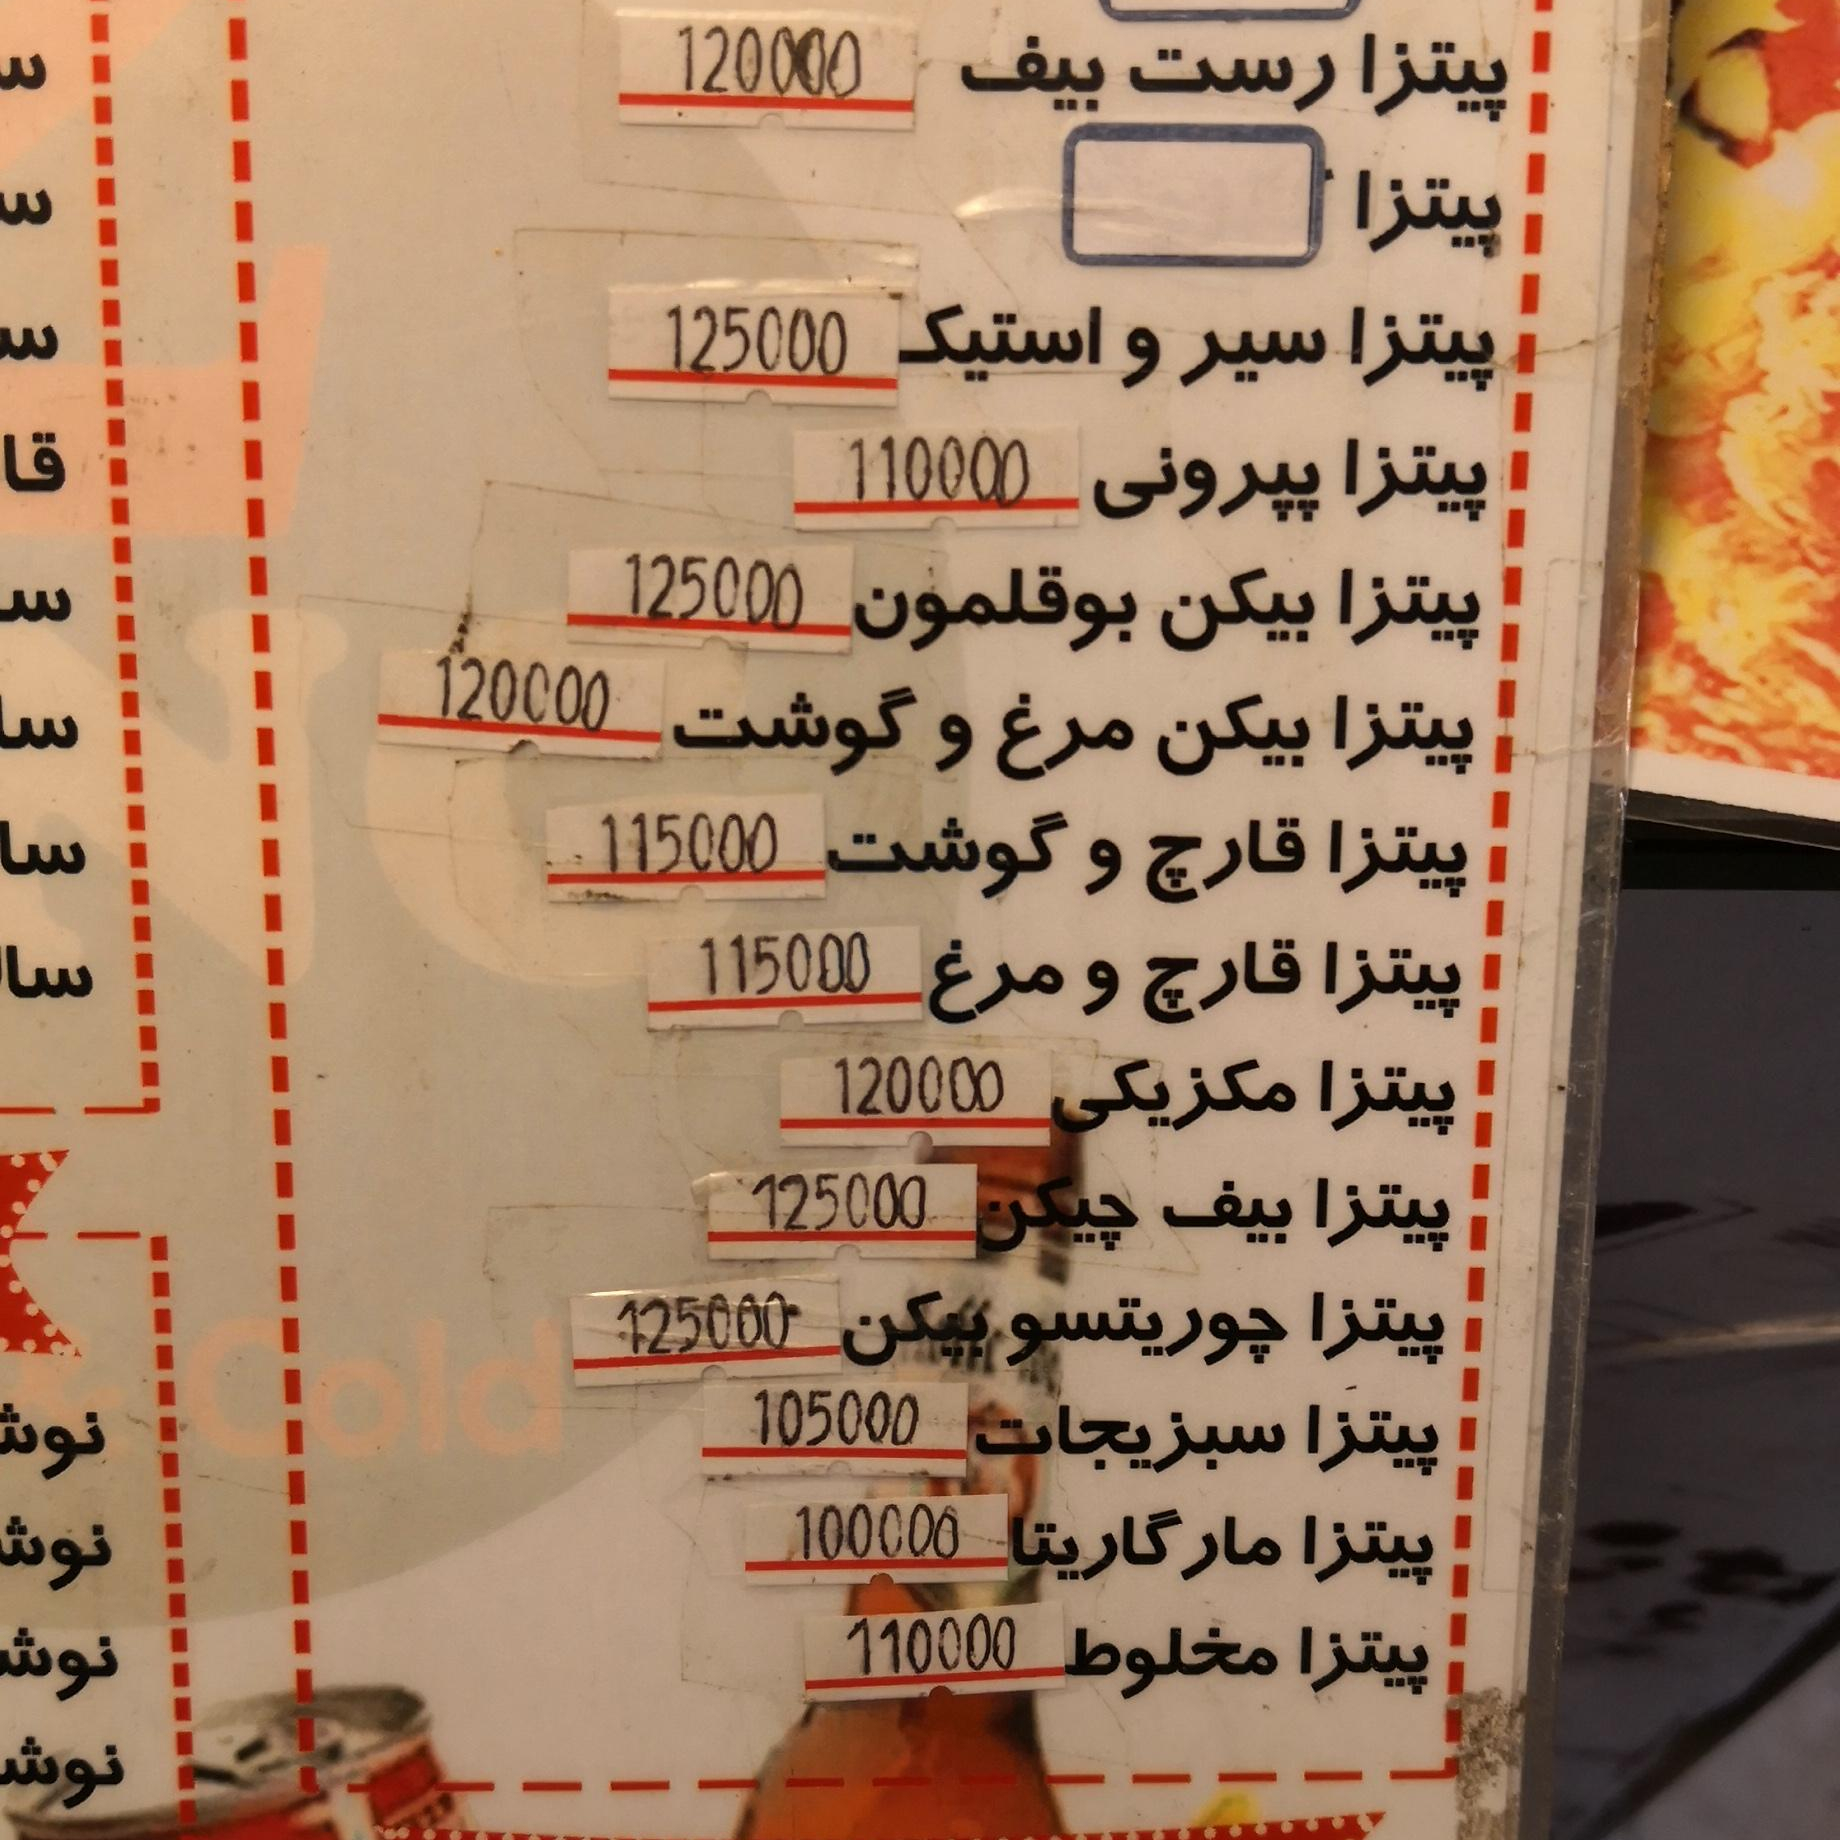 پیتزا رست بیف 120000
پیتزا
پیتزا سیر و استیک 125000
پیتزا پپرونی 110000
پیتزا بیکن بوقلمون 125000
پیتزا بیکن مرغ و گوشت 120000
پیتزا قارچ و گوشت 115000
پیتزا قارچ و مرغ 115000
پیتزا مکزیکی 120000
پیتزا بیف چیکن 125000
پیتزا چوریتسو بیکن 125000
پیتزا سبزیجات 105000
پیتزا مارگاریتا 100000
پیتزا مخلوط 110000
Cold